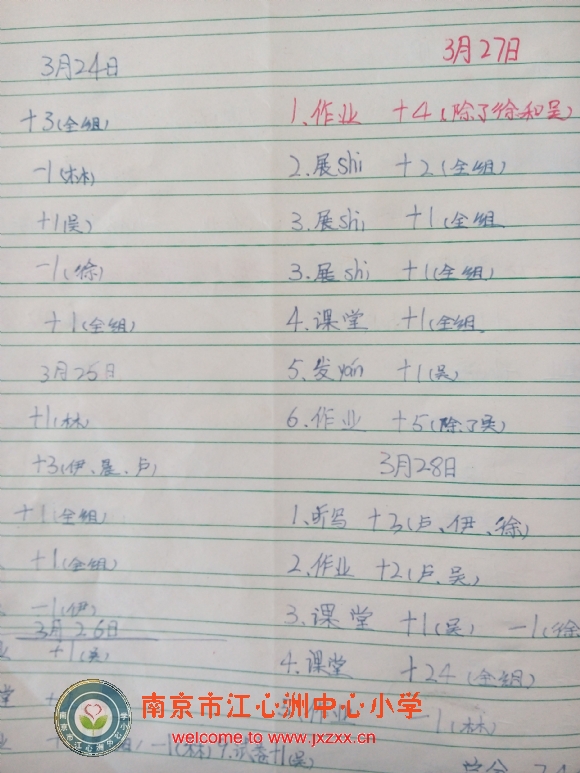 3月24日
+3(全组)
-1(林)
+1(吴)
-1(徐)
+1(全组)
3月25日
+1(林)
+3(伊、展、卢)
+1(全组)
+1(全组)
-1(伊)
3月26日
+1(吴)
3月27日
1.作业 +4(除了徐和吴)
2.展shi +2(全组)
3.展shi +1(全组
3.展shi +1(全组)
4.课堂 +1(全组
5.发yan +1(吴)
6.作业 +5(除了吴)
3月28日
1.听写 +3(卢、伊、徐)
2.作业 +2(卢、吴)
3.课堂 +1(吴) -1(徐
4.课堂 +24(全组)
作业 -1(林)
-1(林)
+1(吴)
南京市江心洲中心小学
welcome to www.jxzxx.cn